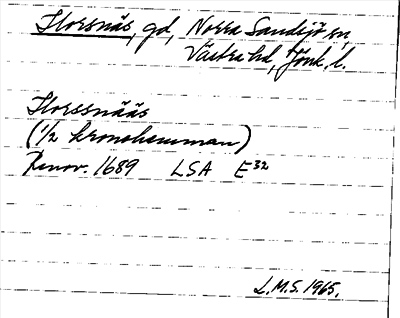 Horsnäs, gd, Norra Sandsjö sn,
Västra hd, Jönk. l.
Horssnääs
(1/2 kronohemman)
Renov. 1689 LSA E32
L.M.S. 1965.